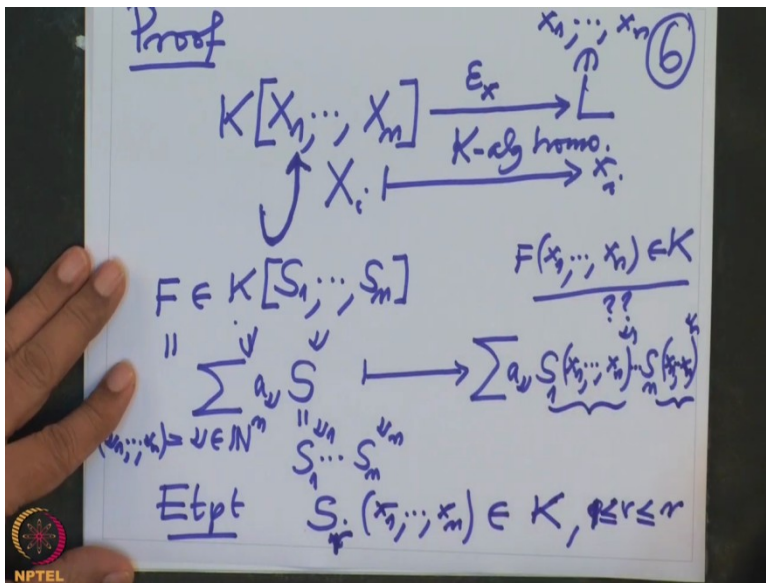 Proof
x₁, ⋯, xₙ ⑥
K[X₁, ⋯, Xₙ] —εₓ→ L
K-alg homo.
Xᵢ ⟼ xᵢ
F ∈ K[S₁, ⋯, Sₙ]
F(x₁, ⋯, xₙ) ∈ K
??
= ∑ a_ν S^ν ⟼ ∑ a_ν S₁(x₁, ⋯, xₙ)^ν₁ ⋯ Sₙ(x₁ ⋯ xₙ)^νₙ
(ν₁, ⋯, νₙ) = ν ∈ ℕⁿ
= S₁^ν₁ ⋯ Sₙ^νₙ
Etpt Sᵣ(x₁, ⋯, xₙ) ∈ K, 1 ≤ r ≤ n
NPTEL